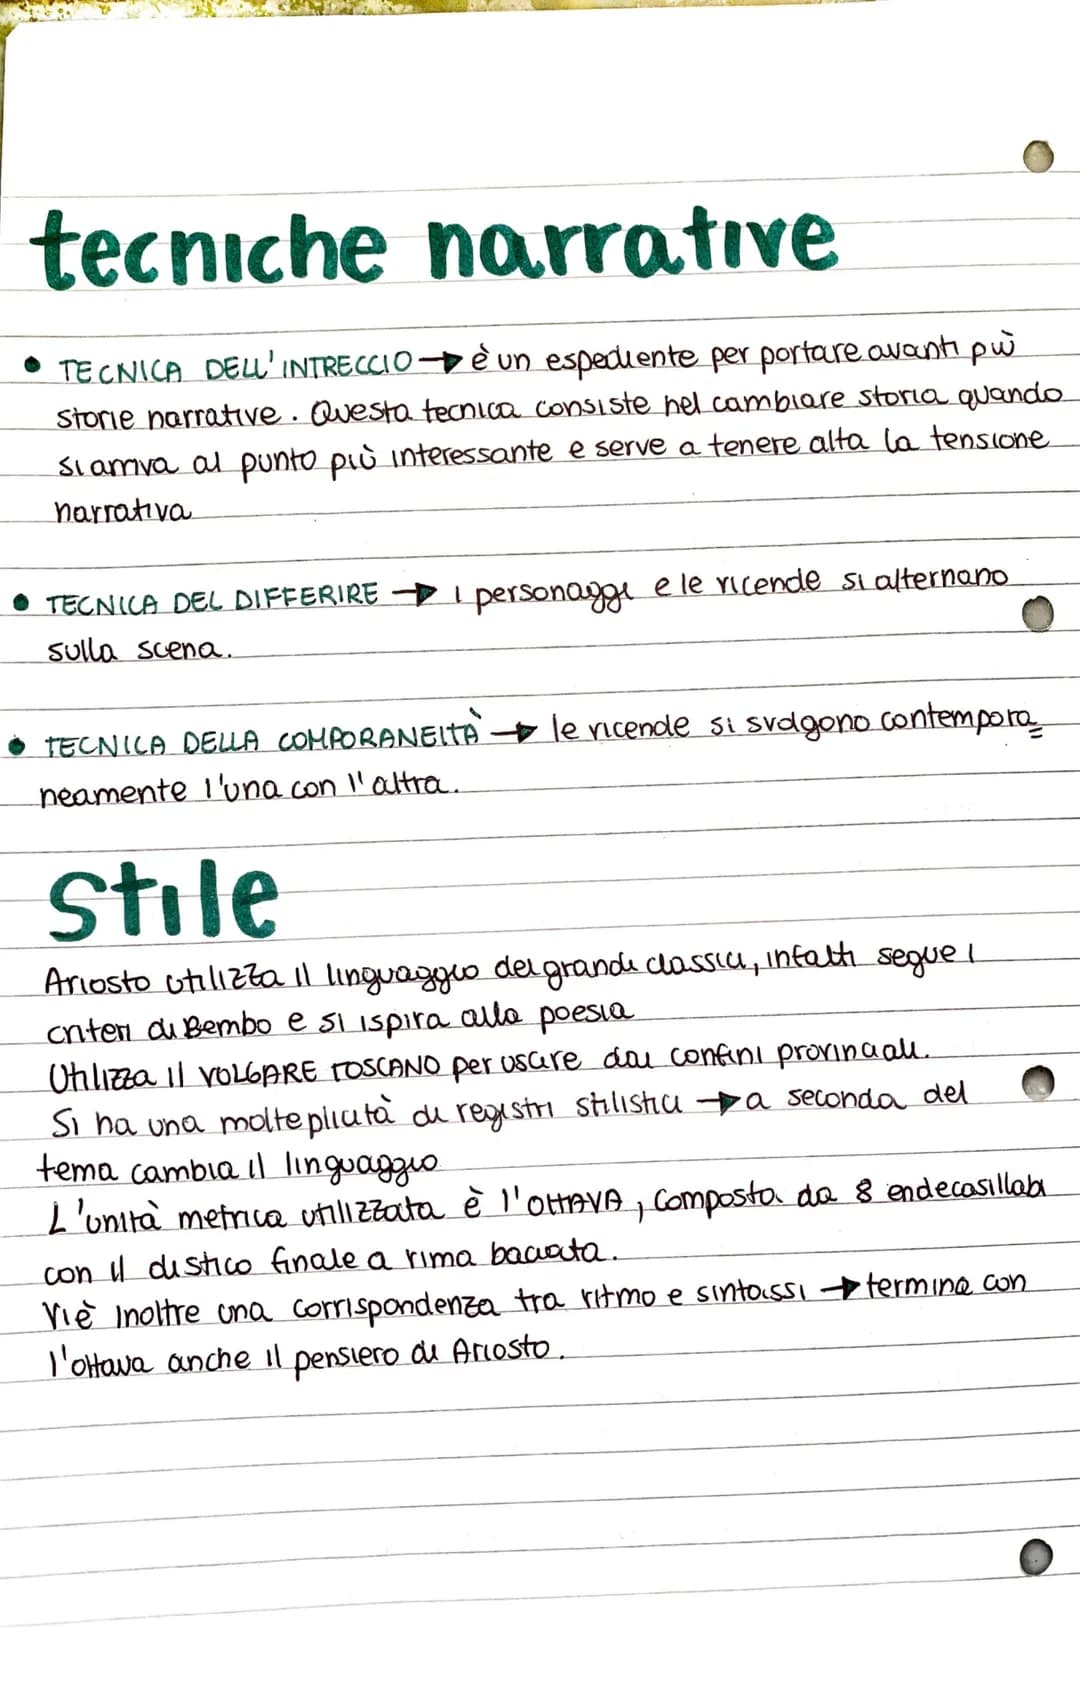 tecniche narrative
• TECNICA DELL'INTRECCIO → è un espediente per portare avanti più
storie narrative. Questa tecnica consiste nel cambiare storia quando
si arriva al punto più interessante e serve a tenere alta la tensione
narrativa
• TECNICA DEL DIFFERIRE → i personaggi e le vicende si alternano
sulla scena.
• TECNICA DELLA COMPORANEITÀ → le vicende si svolgono contempora=
neamente l'una con l'altra.
Stile
Ariosto utilizza il linguaggio dei grandi classici, infatti segue i
criteri di Bembo e si ispira alla poesia
Utilizza il VOLGARE TOSCANO per uscire dai confini provinciali.
Si ha una molteplicità di registri stilistici → a seconda del
tema cambia il linguaggio
L'unità metrica utilizzata è l'OTTAVA, composta da 8 endecasillabi
con il distico finale a rima baciata.
Vi è inoltre una corrispondenza tra ritmo e sintassi → termina con
l'ottava anche il pensiero di Ariosto.